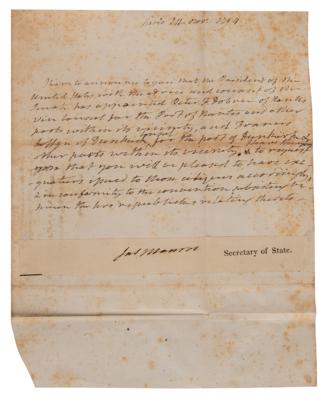 Paris 24. Nov. 1794
I have to announce to you that the President of the
United States with the advice and consent of the
Senate has appointed Peter F Dobree of Nantes
vice Consul for the Port of Nantes and other
ports within its vicinity, and Francis
Coffyn of Dunkirk, Consul for the port of Dunkirk &
other ports within its vicinity. to request of
you that you will be pleased to have exe
quaturs issued to those citizens accordingly,
in conformity to the convention subsisting be
tween the two republicks relating thereto.
Jas Monroe
Secretary of State.